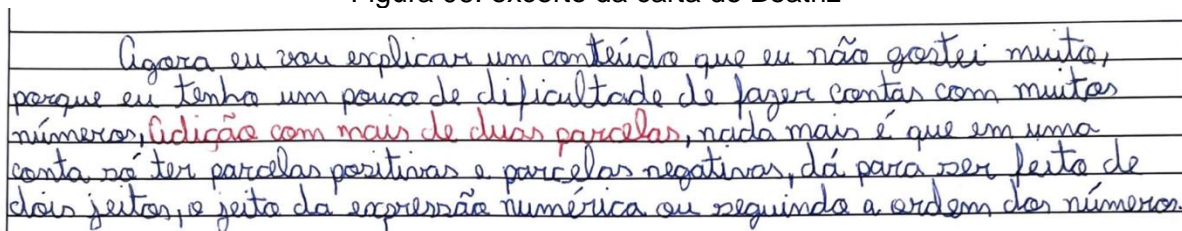 Figura 06: excerto da carta de Beatriz
Agora eu vou explicar um conteúdo que eu não gostei muito,
porque eu tenho um pouco de dificultade de fazer contas com muitos
números, Adição com mais de duas parcelas, nada mais é que em uma
conta só ter parcelas positivas e parcelas negativas, dá para ser feito de
dois jeitos, o jeito da expressão numérica ou seguindo a ordem dos números.